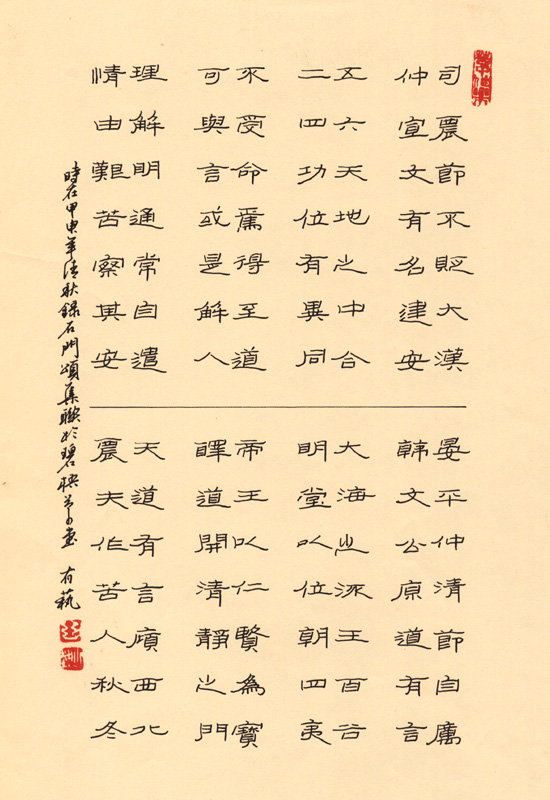 司農節不貶大漢
仲宣文有名建安
五六天地之中合
二四功位有異同
不受命焉得至道
可與言或是解人
理解明通常自遣
情由艱苦察其安
晏平仲清節自厲
韓文公原道有言
大海之深王百谷
明堂以位朝四夷
帝王以仁賢為寶
暉道開清靜之門
天道有言顧西北
農夫作苦人秋冬
時在甲申年清秋錄石門頌集聯於碧 有藝